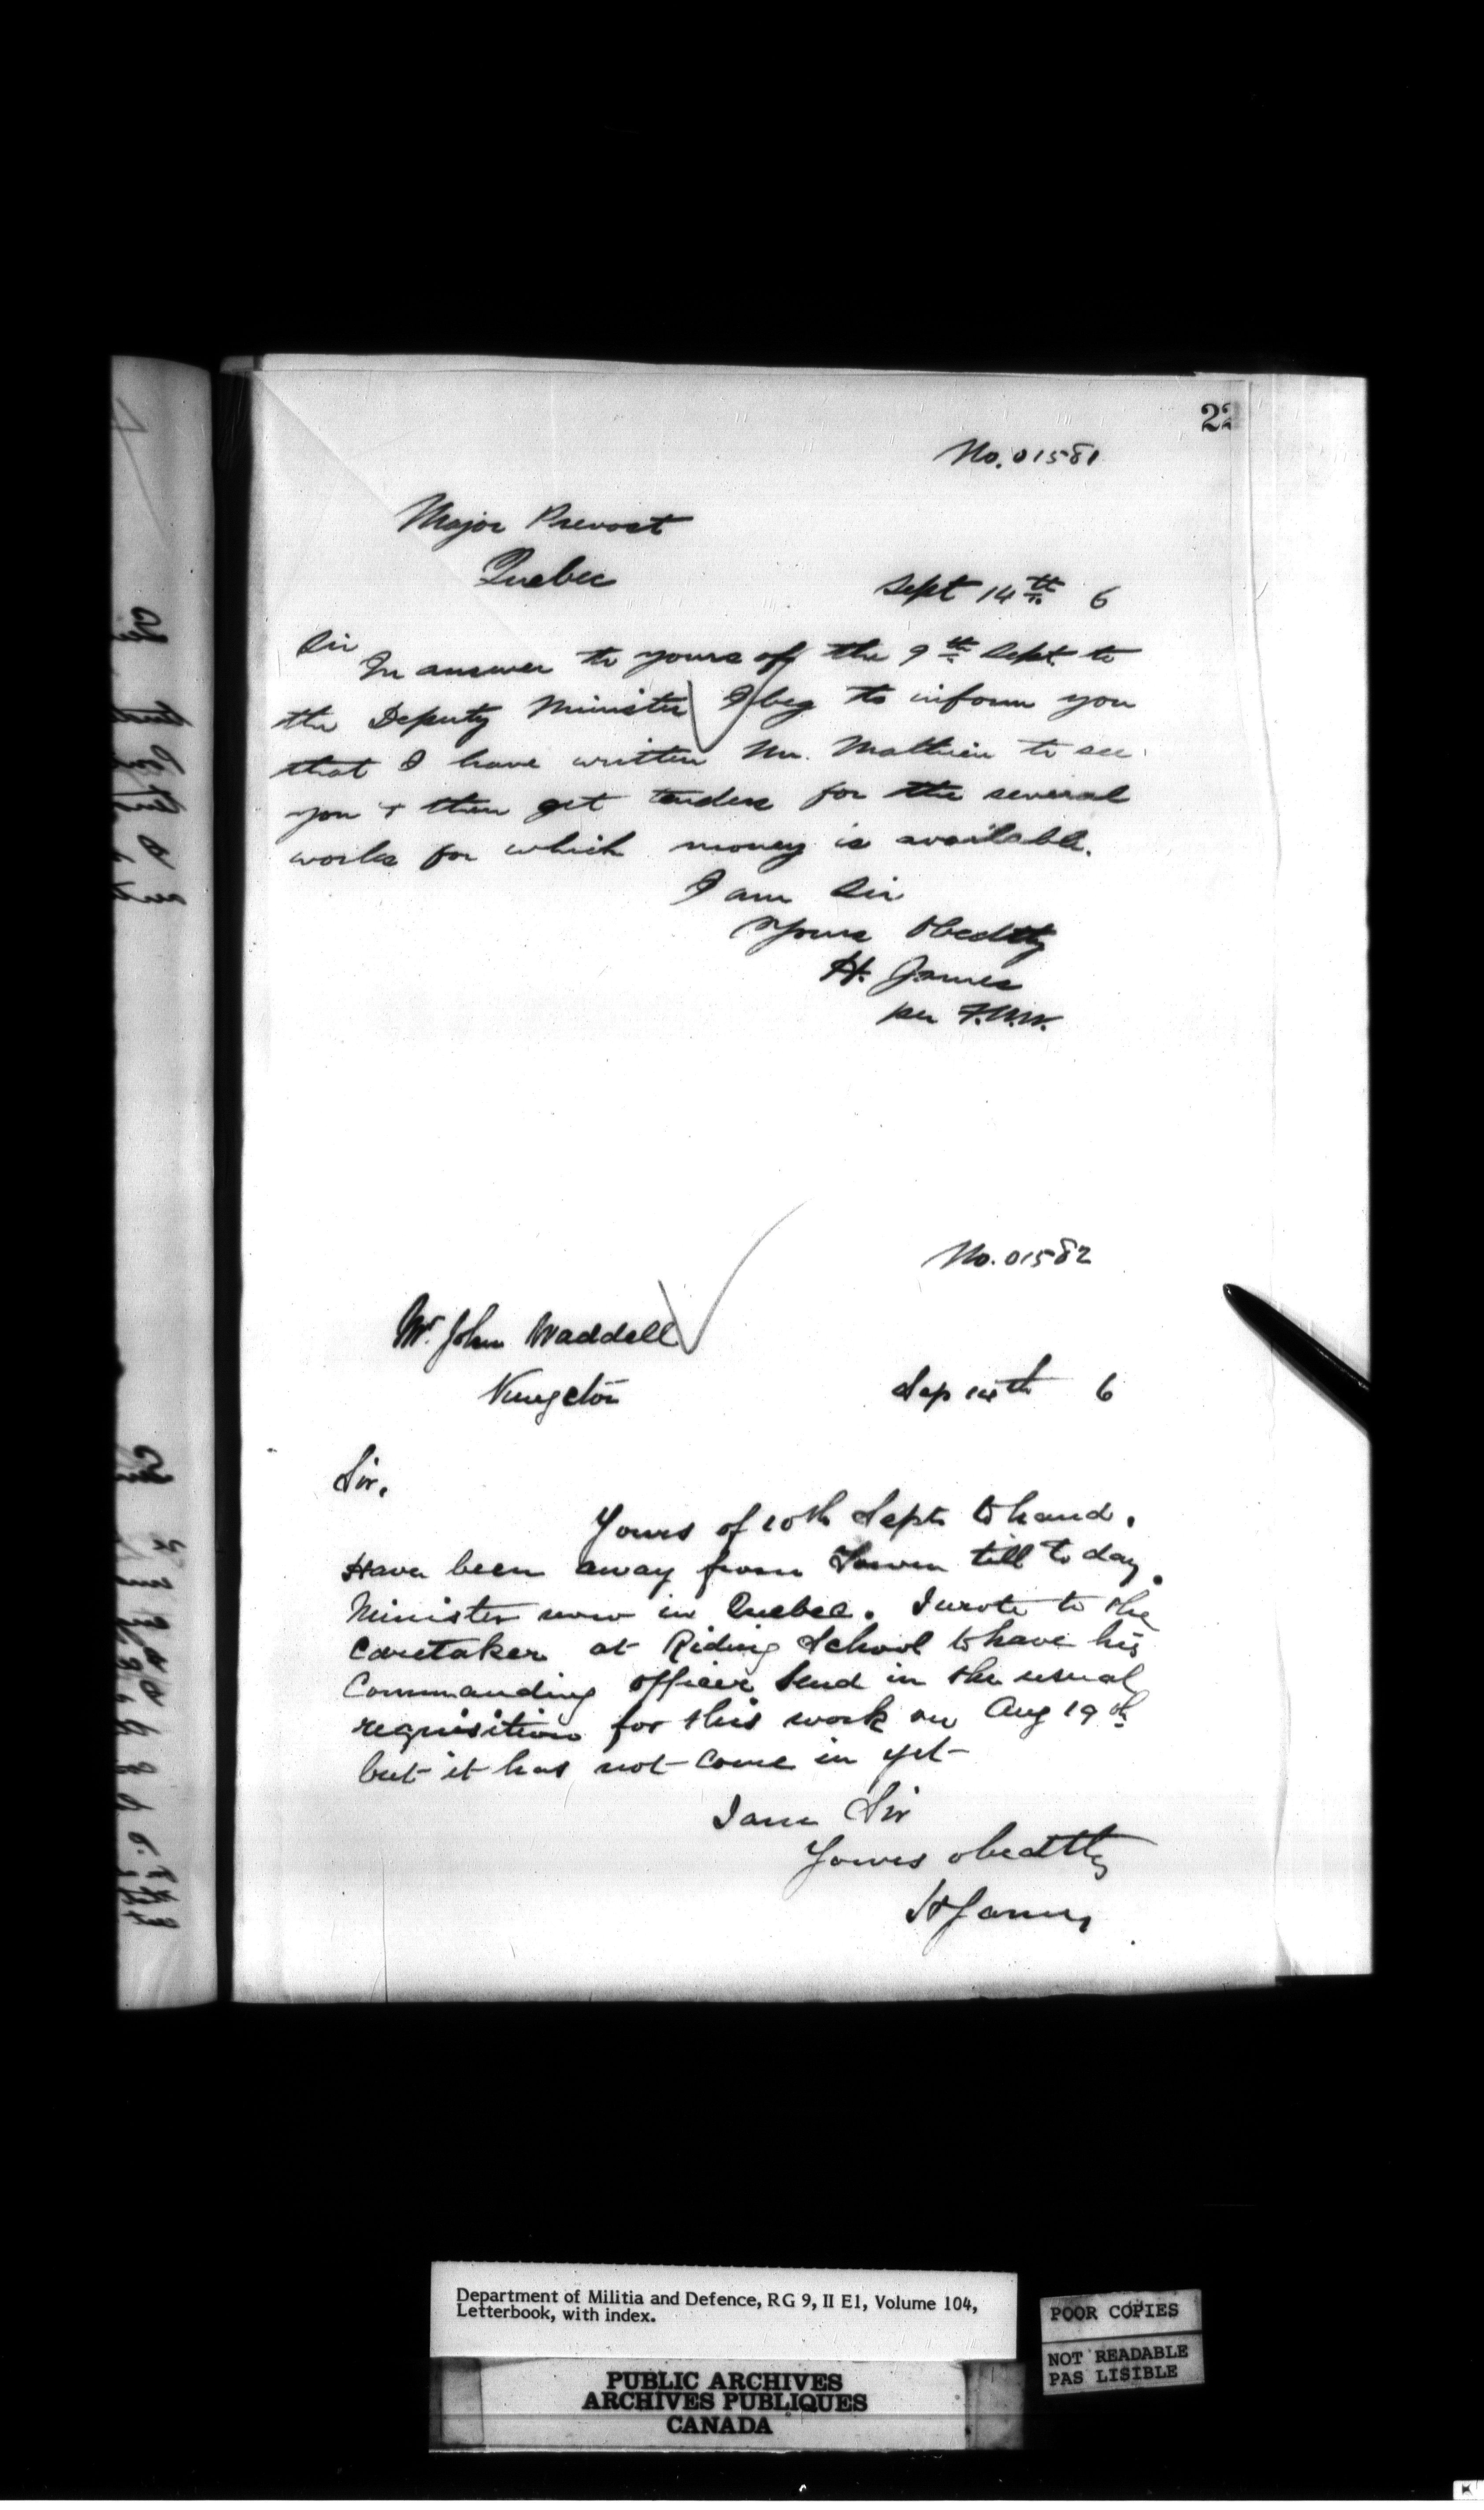 22
No. 01581
Major Prevost
Quebec
Sept 14th 6
Sir
In answer to yours of the 9th Sept. to
the Deputy Minister I beg to inform you
that I have written Mr. Mathieu to see
you + then get tenders for the several
works for which money is available.
I am Sir
Yours Obedtly
H. James
per
No. 01582
Mr. John Waddell
Kingston
Sep 14th 6
Sir.
Yours of 10th Sept. to hand.
Have been away from Town till to day.
Minister now in Quebec. I wrote to the
Caretaker at Riding School to have his
Commanding Officer send in the usual
requisition for this work on Aug 19th
but it has not come in yet
I am Sir
Yours obedtly
H James
Department of Militia and Defence, RG 9, II E1, Volume 104,
Letterbook, with index.
POOR COPIES
NOT READABLE
PAS LISIBLE
PUBLIC ARCHIVES
ARCHIVES PUBLIQUES
CANADA